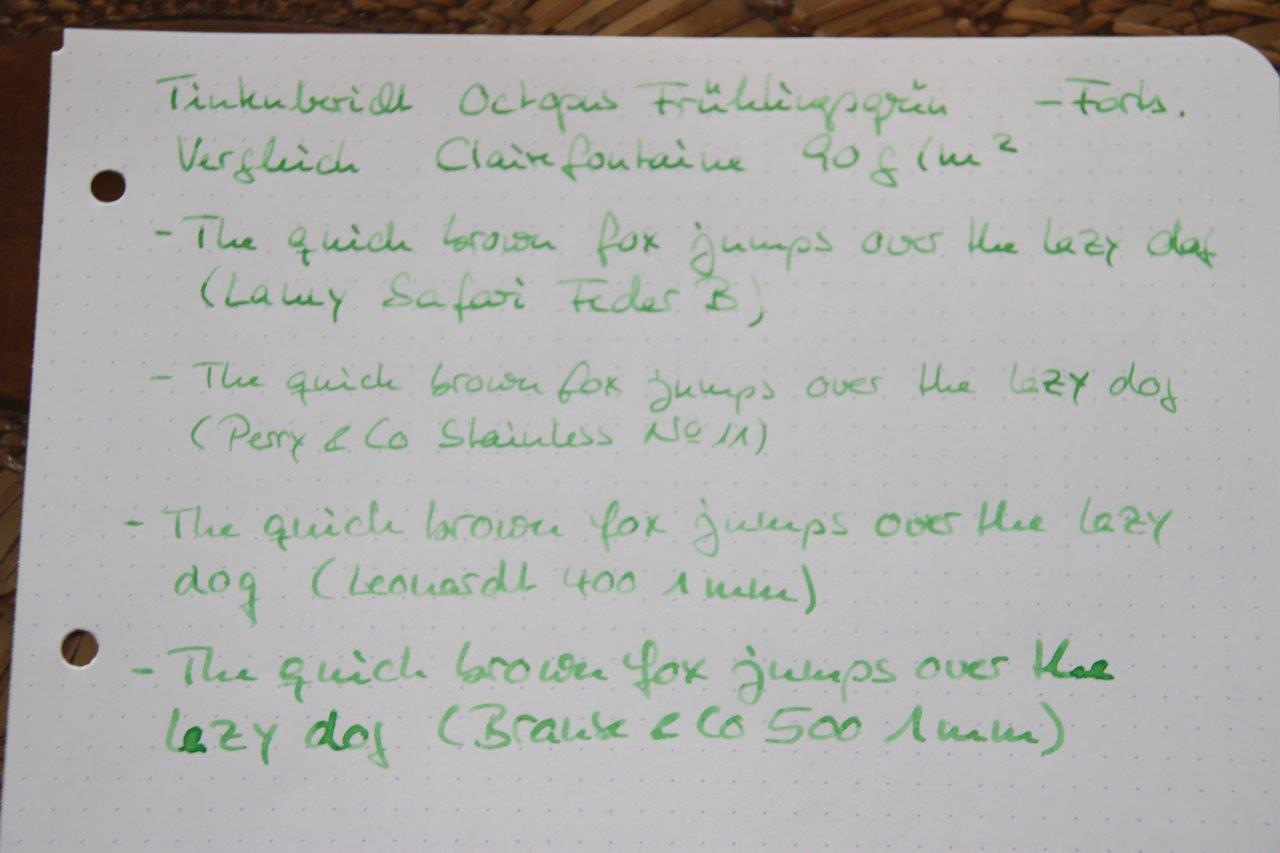 Tintenbericht Octopus Frühlingsgrün – Forts.
Vergleich Clairefontaine 90 g/m²
- The quick brown fox jumps over the lazy dog
(Lamy Safari Feder B)
- The quick brown fox jumps over the lazy dog
(Perry & Co Stainless No 11)
- The quick brown fox jumps over the lazy
dog (Leonardt 400 1 mm)
- The quick brown fox jumps over the
lazy dog (Brause & Co 500 1 mm)